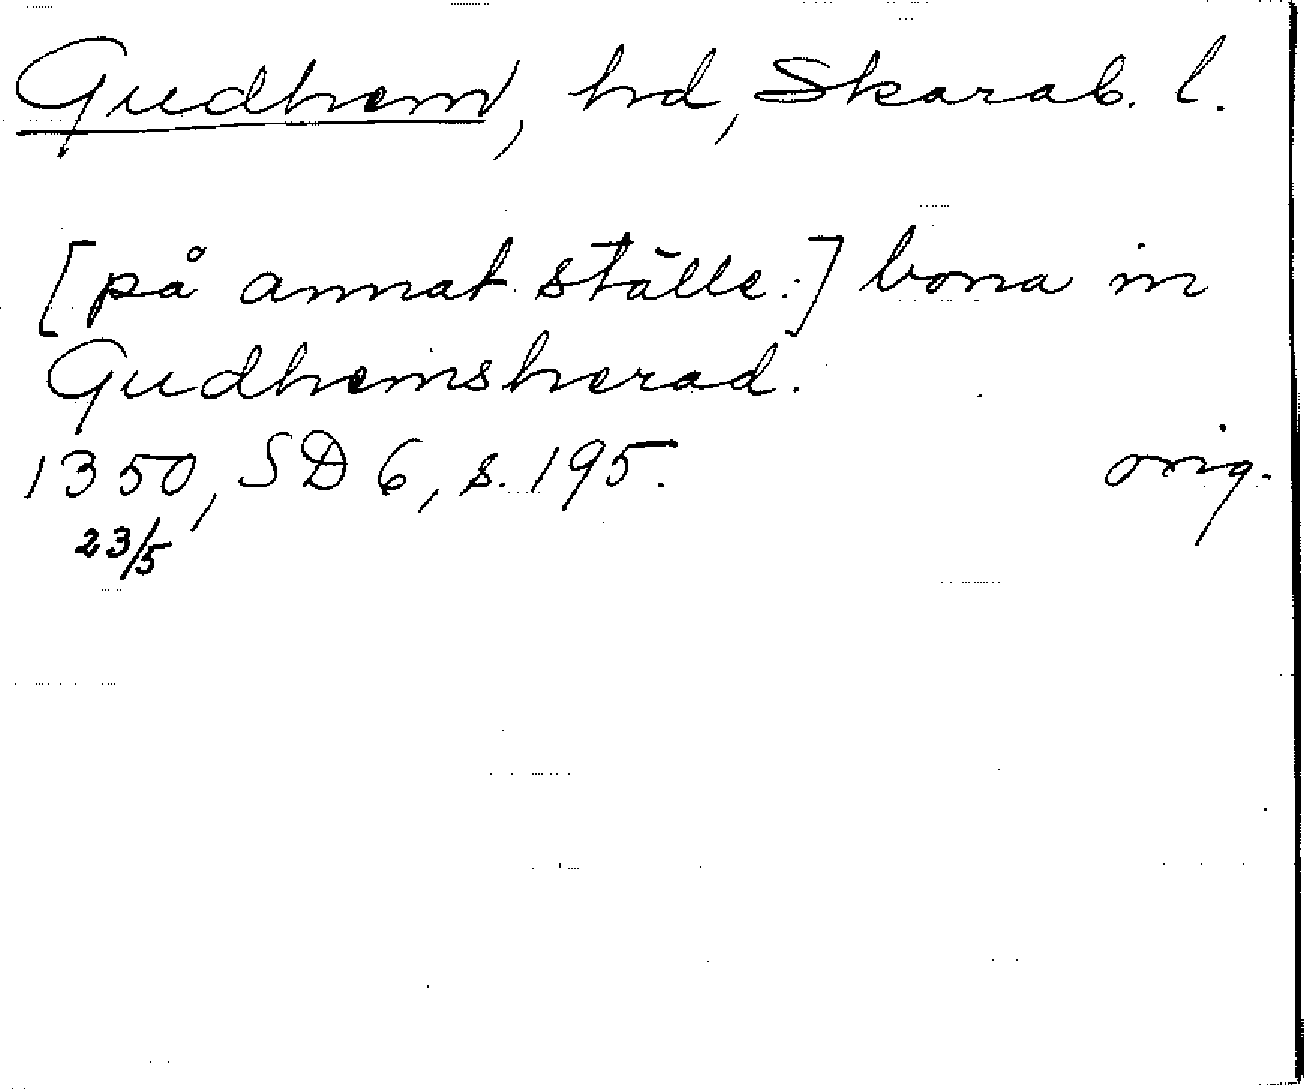 Gudhem, hd, Skarab. l.
[på annat ställe:] bona in
Gudhemsherad.
1350, SD 6, s. 195. orig.
23/5